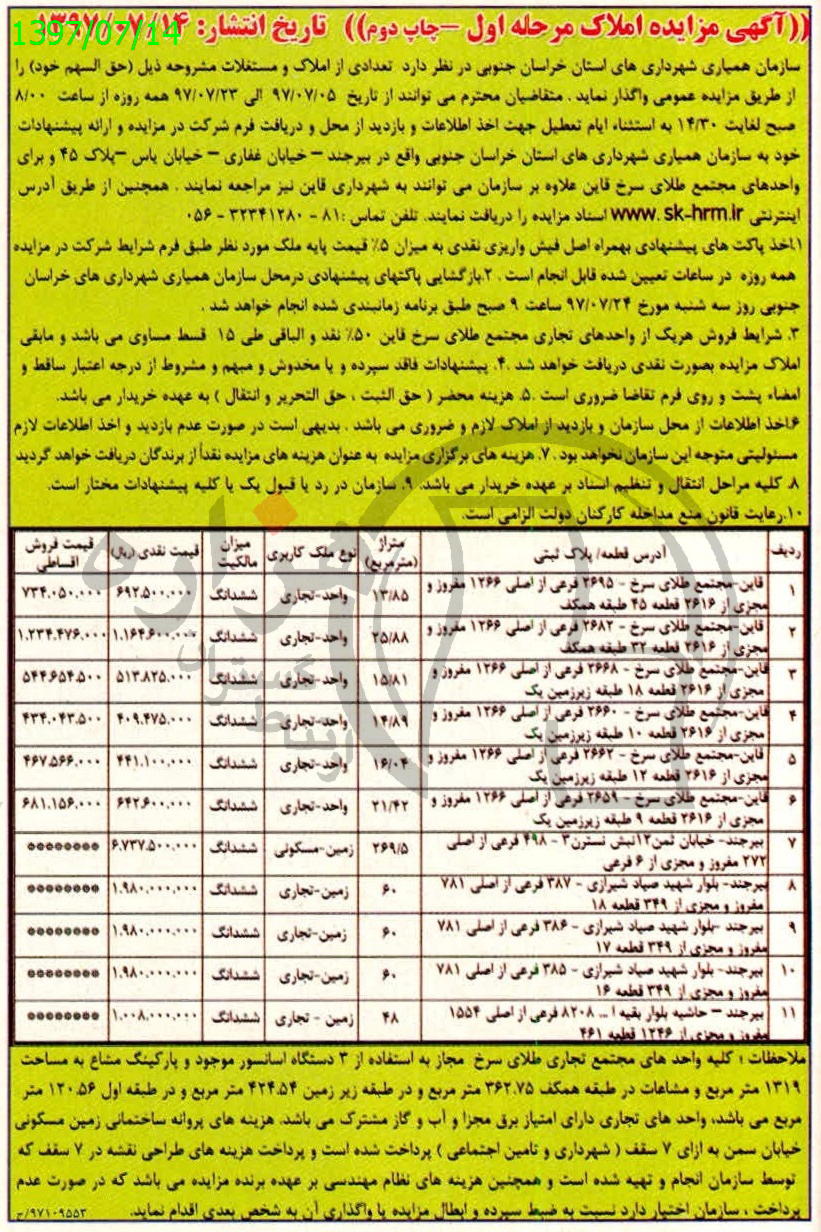 ((آگهی مزایده املاک مرحله اول –چاپ دوم)) تاریخ انتشار: ۱۳۹۷/۰۷/۱۴
1397/07/14
سازمان همیاری شهرداری های استان خراسان جنوبی در نظر دارد تعدادی از املاک و مستغلات مشروحه ذیل (حق السهم خود) را
از طریق مزایده عمومی واگذار نماید . متقاضیان محترم می توانند از تاریخ ۹۷/۰۷/۰۵ الی ۹۷/۰۷/۲۳ همه روزه از ساعت ۸/۰۰
صبح لغایت ۱۴/۳۰ به استثناء ایام تعطیل جهت اخذ اطلاعات و بازدید از محل و دریافت فرم شرکت در مزایده و ارائه پیشنهادات
خود به سازمان همیاری شهرداری های استان خراسان جنوبی واقع در بیرجند – خیابان غفاری – خیابان یاس –پلاک ۴۵ و برای
واحدهای مجتمع طلای سرخ قاین علاوه بر سازمان می توانند به شهرداری قاین نیز مراجعه نمایند . همچنین از طریق آدرس
اینترنتی www.sk-hrm.ir اسناد مزایده را دریافت نمایند. تلفن تماس :۸۱ - ۳۲۳۴۱۲۸۰ - ۰۵۶
۱.اخذ پاکت های پیشنهادی بهمراه اصل فیش واریزی نقدی به میزان ۵٪ قیمت پایه ملک مورد نظر طبق فرم شرایط شرکت در مزایده
همه روزه در ساعات تعیین شده قابل انجام است . ۲.بازگشایی پاکتهای پیشنهادی درمحل سازمان همیاری شهرداری های خراسان
جنوبی روز سه شنبه مورخ ۹۷/۰۷/۲۴ ساعت ۹ صبح طبق برنامه زمانبندی شده انجام خواهد شد .
۳. شرایط فروش هریک از واحدهای تجاری مجتمع طلای سرخ قاین ۵۰٪ نقد و الباقی طی ۱۵ قسط مساوی می باشد و مابقی
املاک مزایده بصورت نقدی دریافت خواهد شد .۴. پیشنهادات فاقد سپرده و یا مخدوش و مبهم و مشروط از درجه اعتبار ساقط و
امضاء پشت و روی فرم تقاضا ضروری است .۵. هزینه محضر ( حق الثبت ، حق التحریر و انتقال ) به عهده خریدار می باشد.
۶.اخذ اطلاعات از محل سازمان و بازدید از املاک لازم و ضروری می باشد . بدیهی است در صورت عدم بازدید و اخذ اطلاعات لازم
مسئولیتی متوجه این سازمان نخواهد بود . ۷. هزینه های برگزاری مزایده به عنوان هزینه های مزایده نقداً از برندگان دریافت خواهد گردید
۸. کلیه مراحل انتقال و تنظیم اسناد بر عهده خریدار می باشد. ۹. سازمان در رد یا قبول یک یا کلیه پیشنهادات مختار است.
۱۰.رعایت قانون منع مداخله کارکنان دولت الزامی است.
ردیف آدرس قطعه/ پلاک ثبتی متراژ (مترمربع) نوع ملک کاربری میزان مالکیت قیمت نقدی (ریال) قیمت فروش اقساطی
۱ قاین-مجتمع طلای سرخ - ۲۶۹۵ فرعی از اصلی ۱۲۶۶ مفروز و
مجزی از ۲۶۱۶ قطعه ۴۵ طبقه همکف ۱۳/۸۵ واحد-تجاری ششدانگ ۶۹۲.۵۰۰.۰۰۰ ۷۳۴.۰۵۰.۰۰۰
۲ قاین-مجتمع طلای سرخ - ۲۶۸۲ فرعی از اصلی ۱۲۶۶ مفروز و
مجزی از ۲۶۱۶ قطعه ۳۲ طبقه همکف ۲۵/۸۸ واحد-تجاری ششدانگ ۱.۱۶۴.۶۰۰.۰۰۰ ۱.۲۳۴.۴۷۶.۰۰۰
۳ قاین-مجتمع طلای سرخ - ۲۶۶۸ فرعی از اصلی ۱۲۶۶ مفروز و
مجزی از ۲۶۱۶ قطعه ۱۸ طبقه زیرزمین یک ۱۵/۸۱ واحد-تجاری ششدانگ ۵۱۳.۸۲۵.۰۰۰ ۵۴۴.۶۵۴.۵۰۰
۴ قاین-مجتمع طلای سرخ - ۲۶۶۰ فرعی از اصلی ۱۲۶۶ مفروز و
مجزی از ۲۶۱۶ قطعه ۱۰ طبقه زیرزمین یک ۱۴/۸۹ واحد-تجاری ششدانگ ۴۰۹.۴۷۵.۰۰۰ ۴۳۴.۰۴۳.۵۰۰
۵ قاین-مجتمع طلای سرخ - ۲۶۶۲ فرعی از اصلی ۱۲۶۶ مفروز و
مجزی از ۲۶۱۶ قطعه ۱۲ طبقه زیرزمین یک ۱۶/۰۴ واحد-تجاری ششدانگ ۴۴۱.۱۰۰.۰۰۰ ۴۶۷.۵۶۶.۰۰۰
۶ قاین-مجتمع طلای سرخ - ۲۶۵۹ فرعی از اصلی ۱۲۶۶ مفروز و
مجزی از ۲۶۱۶ قطعه ۹ طبقه زیرزمین یک ۲۱/۴۲ واحد-تجاری ششدانگ ۶۴۲.۶۰۰.۰۰۰ ۶۸۱.۱۵۶.۰۰۰
۷ بیرجند- خیابان ثمن۱۲نبش نسترن۳ - ۴۹۸ فرعی از اصلی
۲۷۲ مفروز و مجزی از ۶ فرعی ۲۶۹/۵ زمین-مسکونی ششدانگ ۶.۷۳۷.۵۰۰.۰۰۰ ********
۸ بیرجند- بلوار شهید صیاد شیرازی - ۳۸۷ فرعی از اصلی ۷۸۱
مفروز و مجزی از ۳۴۹ قطعه ۱۸ ۶۰ زمین-تجاری ششدانگ ۱.۹۸۰.۰۰۰.۰۰۰ ********
۹ بیرجند -بلوار شهید صیاد شیرازی - ۳۸۶ فرعی از اصلی ۷۸۱
مفروز و مجزی از ۳۴۹ قطعه ۱۷ ۶۰ زمین-تجاری ششدانگ ۱.۹۸۰.۰۰۰.۰۰۰ ********
۱۰ بیرجند- بلوار شهید صیاد شیرازی - ۳۸۵ فرعی از اصلی ۷۸۱
مفروز و مجزی از ۳۴۹ قطعه ۱۶ ۶۰ زمین-تجاری ششدانگ ۱.۹۸۰.۰۰۰.۰۰۰ ********
۱۱ بیرجند – حاشیه بلوار بقیه ا ... ۸۲۰۸ فرعی از اصلی ۱۵۵۴
مفروز و مجزی از ۱۲۴۶ قطعه ۴۶۱ ۴۸ زمین - تجاری ششدانگ ۱.۰۰۸.۰۰۰.۰۰۰ ********
ملاحظات : کلیه واحد های مجتمع تجاری طلای سرخ مجاز به استفاده از ۳ دستگاه آسانسور موجود و پارکینگ مشاع به مساحت
۱۳۱۹ متر مربع و مشاعات در طبقه همکف ۳۶۲.۷۵ متر مربع و در طبقه زیر زمین ۴۲۴.۵۴ متر مربع و در طبقه اول ۱۲۰.۵۶ متر
مربع می باشد، واحد های تجاری دارای امتیاز برق مجزا و آب و گاز مشترک می باشد. هزینه های پروانه ساختمانی زمین مسکونی
خیابان سمن به ازای ۷ سقف ( شهرداری و تامین اجتماعی ) پرداخت شده است و پرداخت هزینه های طراحی نقشه در ۷ سقف که
توسط سازمان انجام و تهیه شده است و همچنین هزینه های نظام مهندسی بر عهده برنده مزایده می باشد که در صورت عدم
پرداخت ، سازمان اختیار دارد نسبت به ضبط سپرده و ابطال مزایده یا واگذاری آن به شخص بعدی اقدام نماید.
۹۷۱۰۹۵۵۳/خ
هزاره